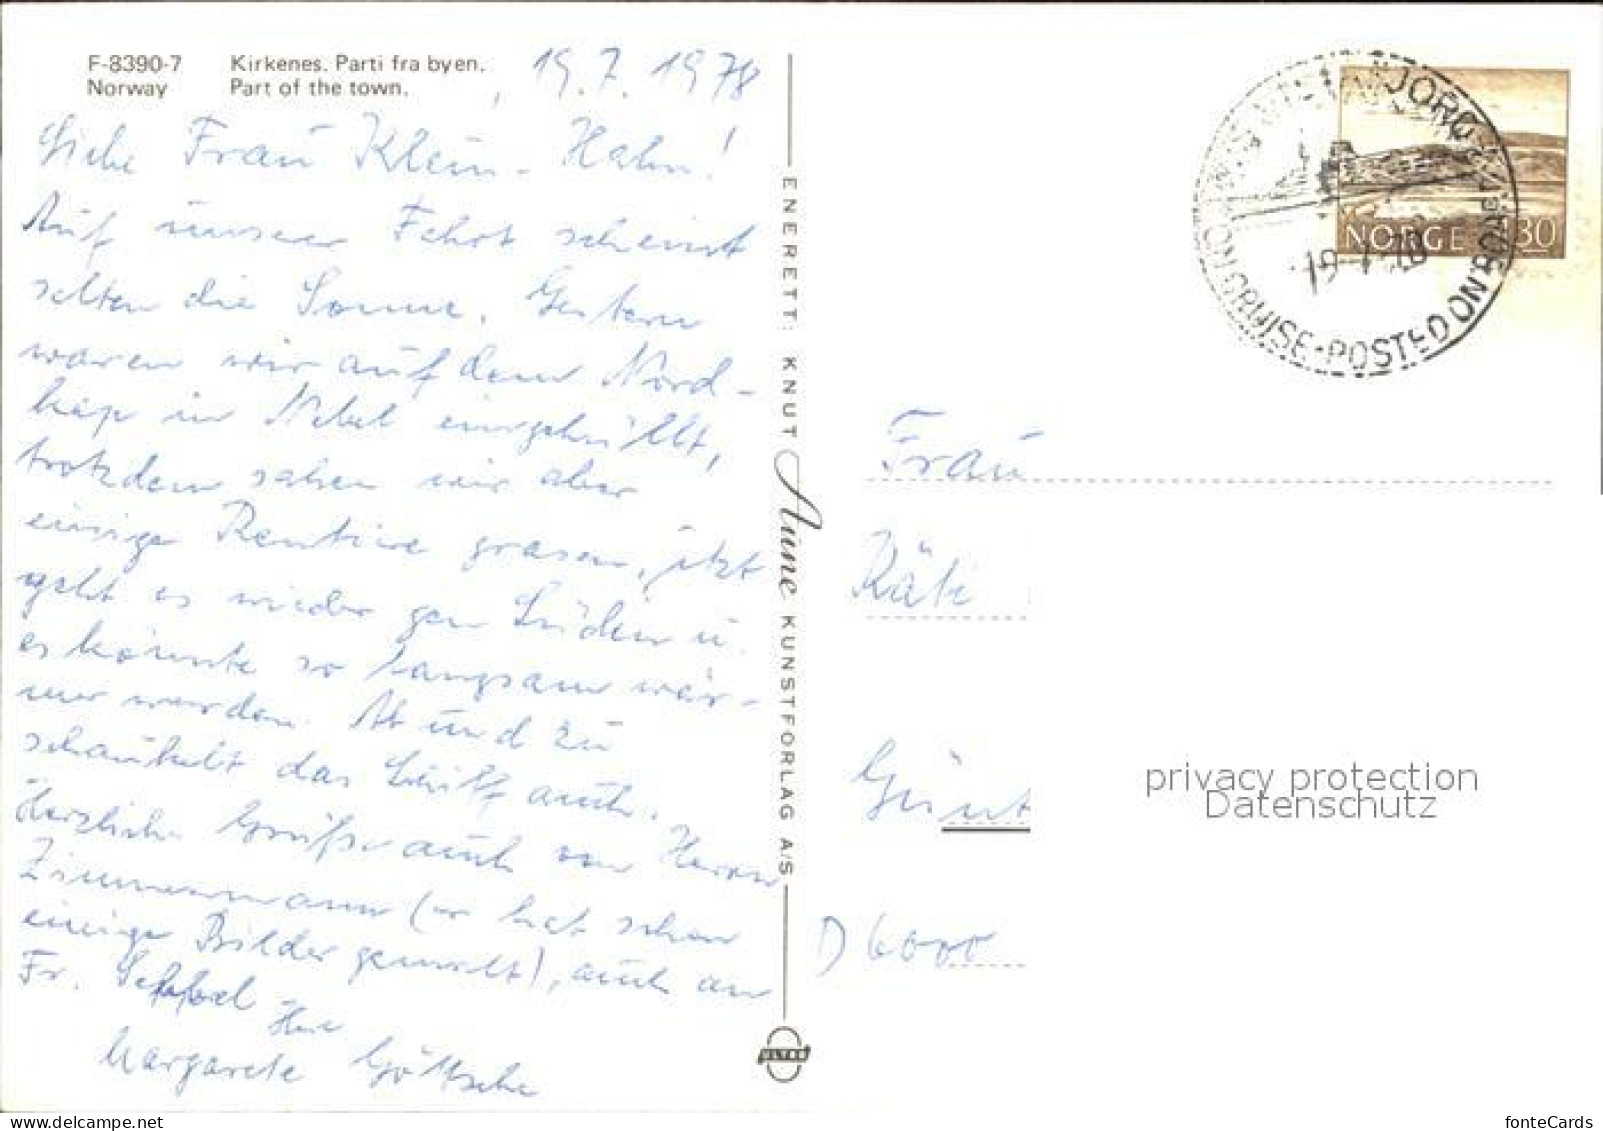 F-8390-7 Kirkenes. Parti fra byen.
Norway Part of the town.
19.7.1978
Liebe Frau Klein-Hahn!
Auf unserer Fahrt scheint
selten die Sonne. Gestern
waren wir auf dem Nord-
kap in Nebel eingehüllt,
trotzdem sahen wir aber
einige Rentiere grasen, jetzt
geht es wieder gen Süden u.
es könnte so langsam wär-
mer werden. Ab und zu
schaukelt das Schiff auch.
Herzliche Grüße auch von Herrn
Zimmermann (er hat schon
einige Bilder gemalt), auch an
Fr.
Ihre
Margarete Göttsche
ENERETT: KNUT Aune KUNSTFORLAG A/S
ULTRA
NORGE 80
CRUISE · POSTED ON BO
Frau
Käti
Günt
D 6000
privacy protection
Datenschutz
fonteCards